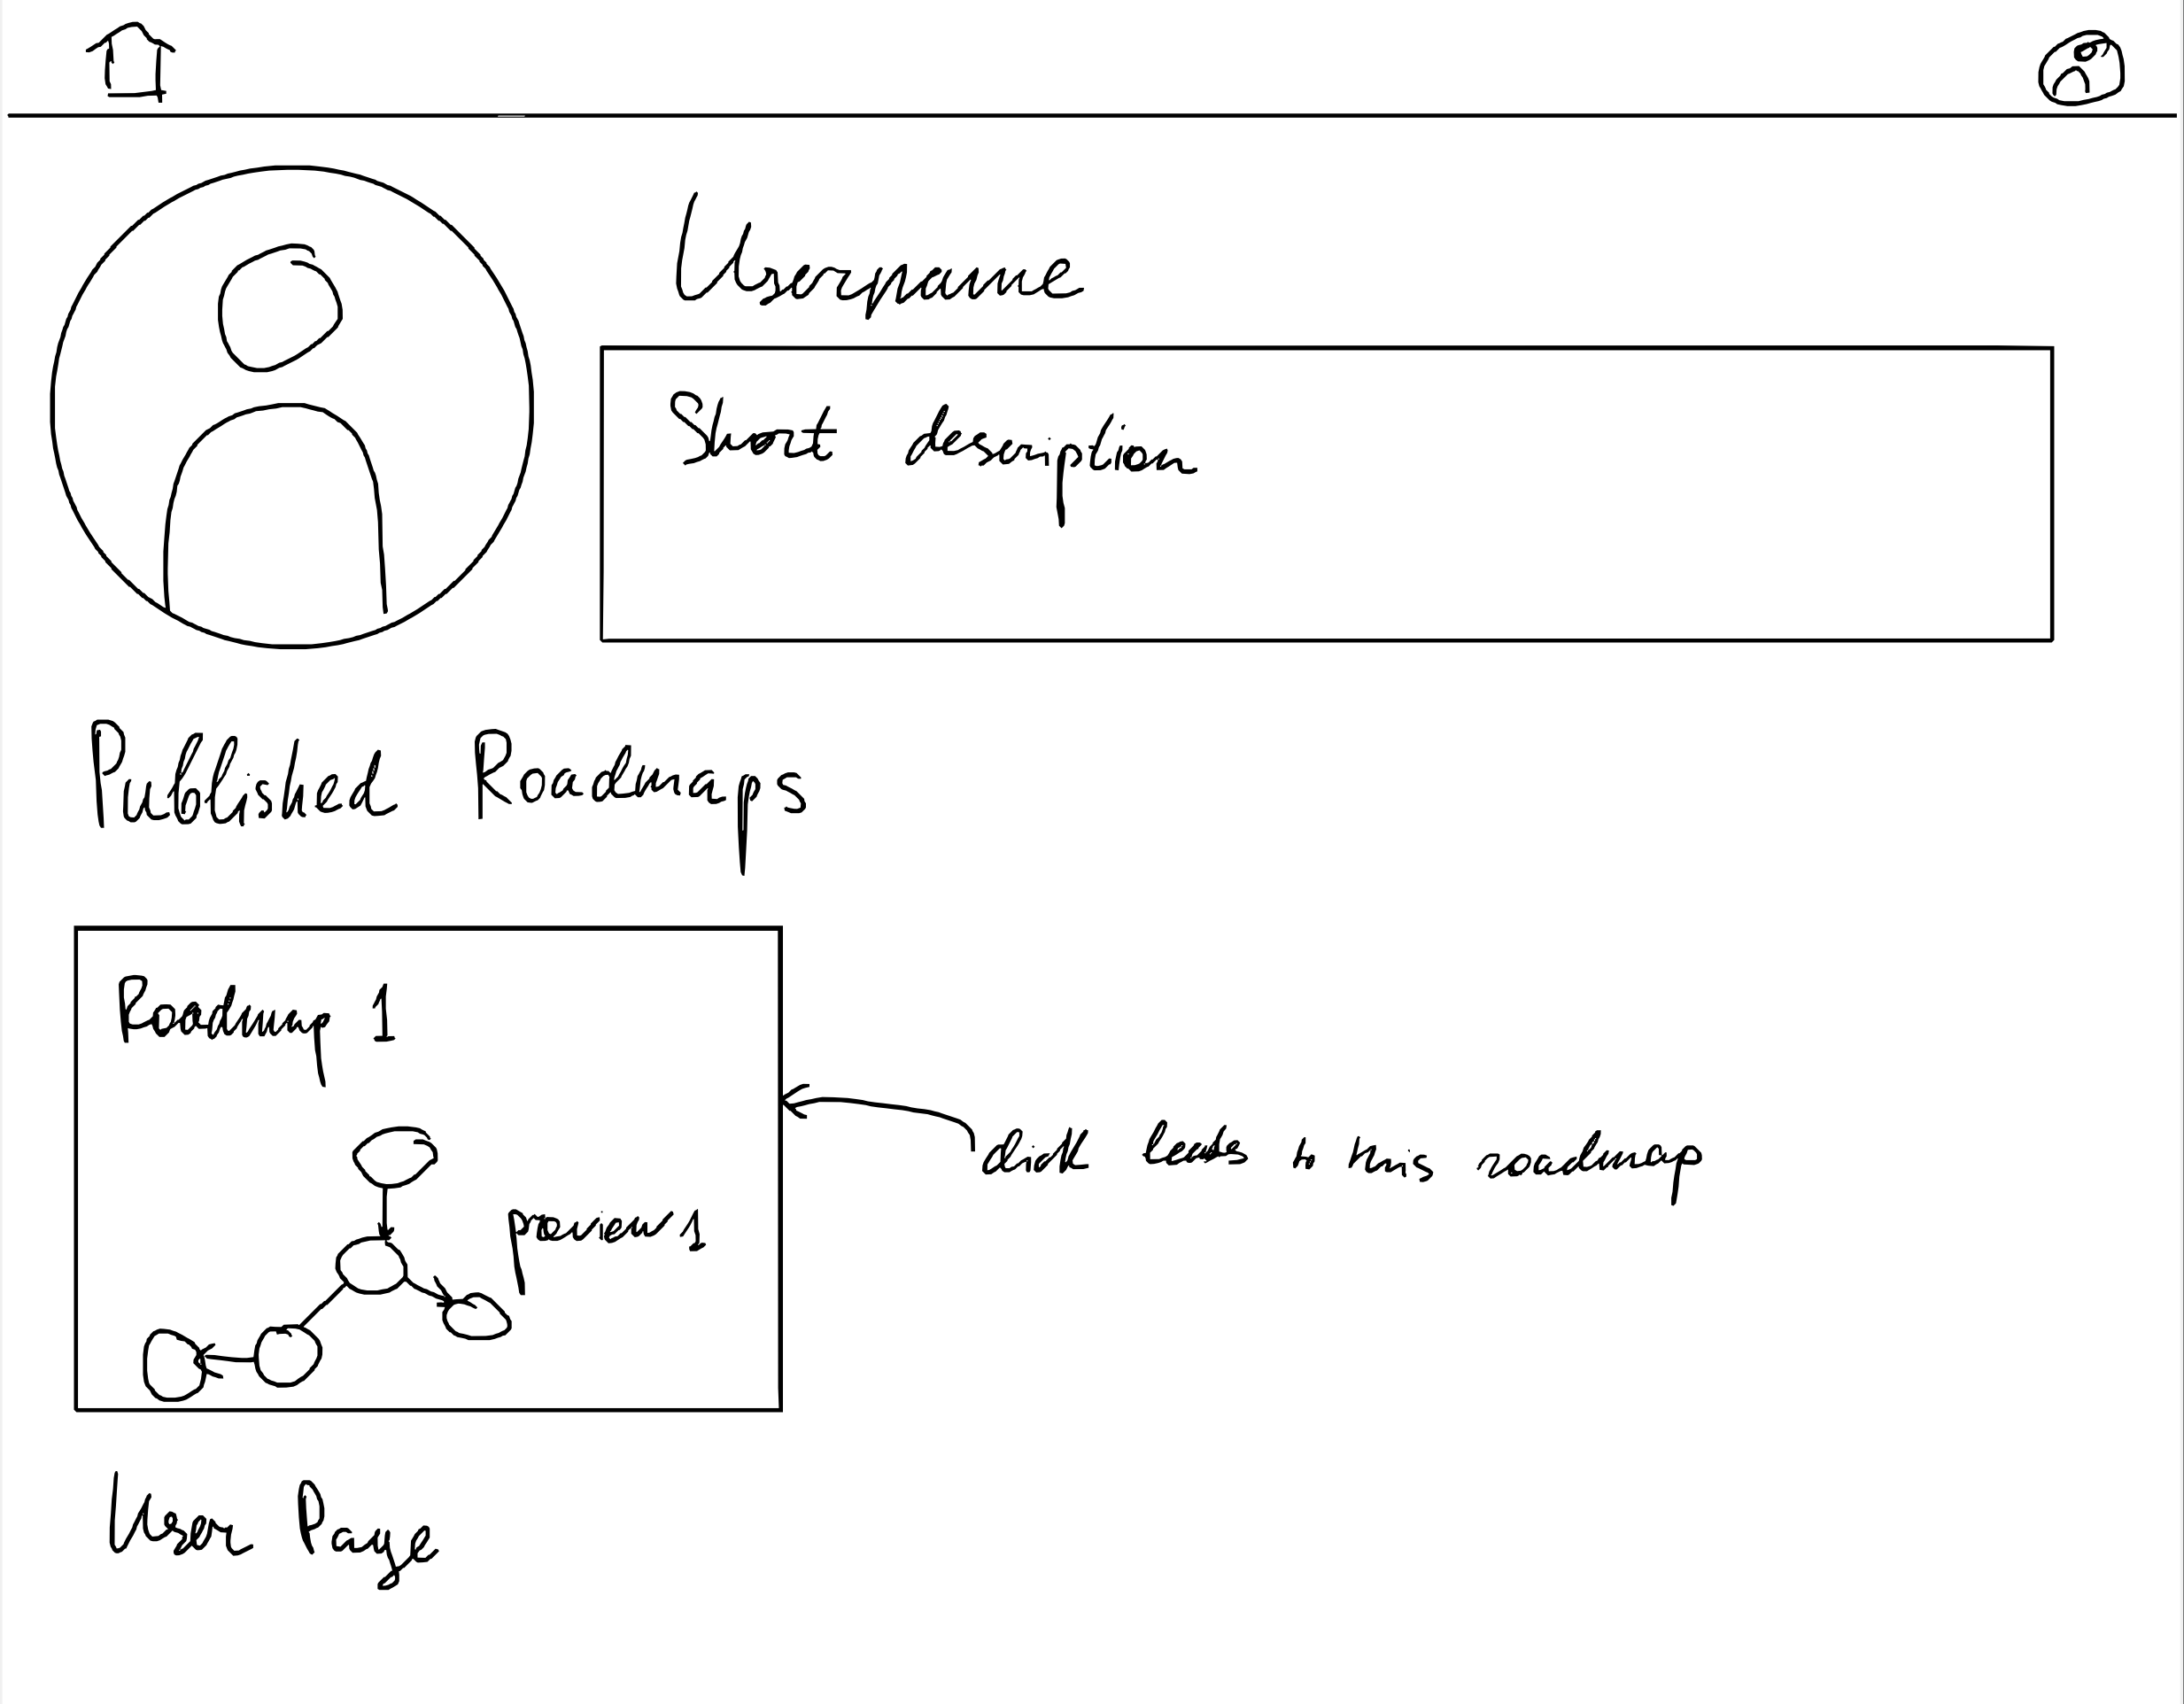 Username
Short description
Published Roadmaps
Roadmap 1
preview 1
click leads to this roadmap
User Page